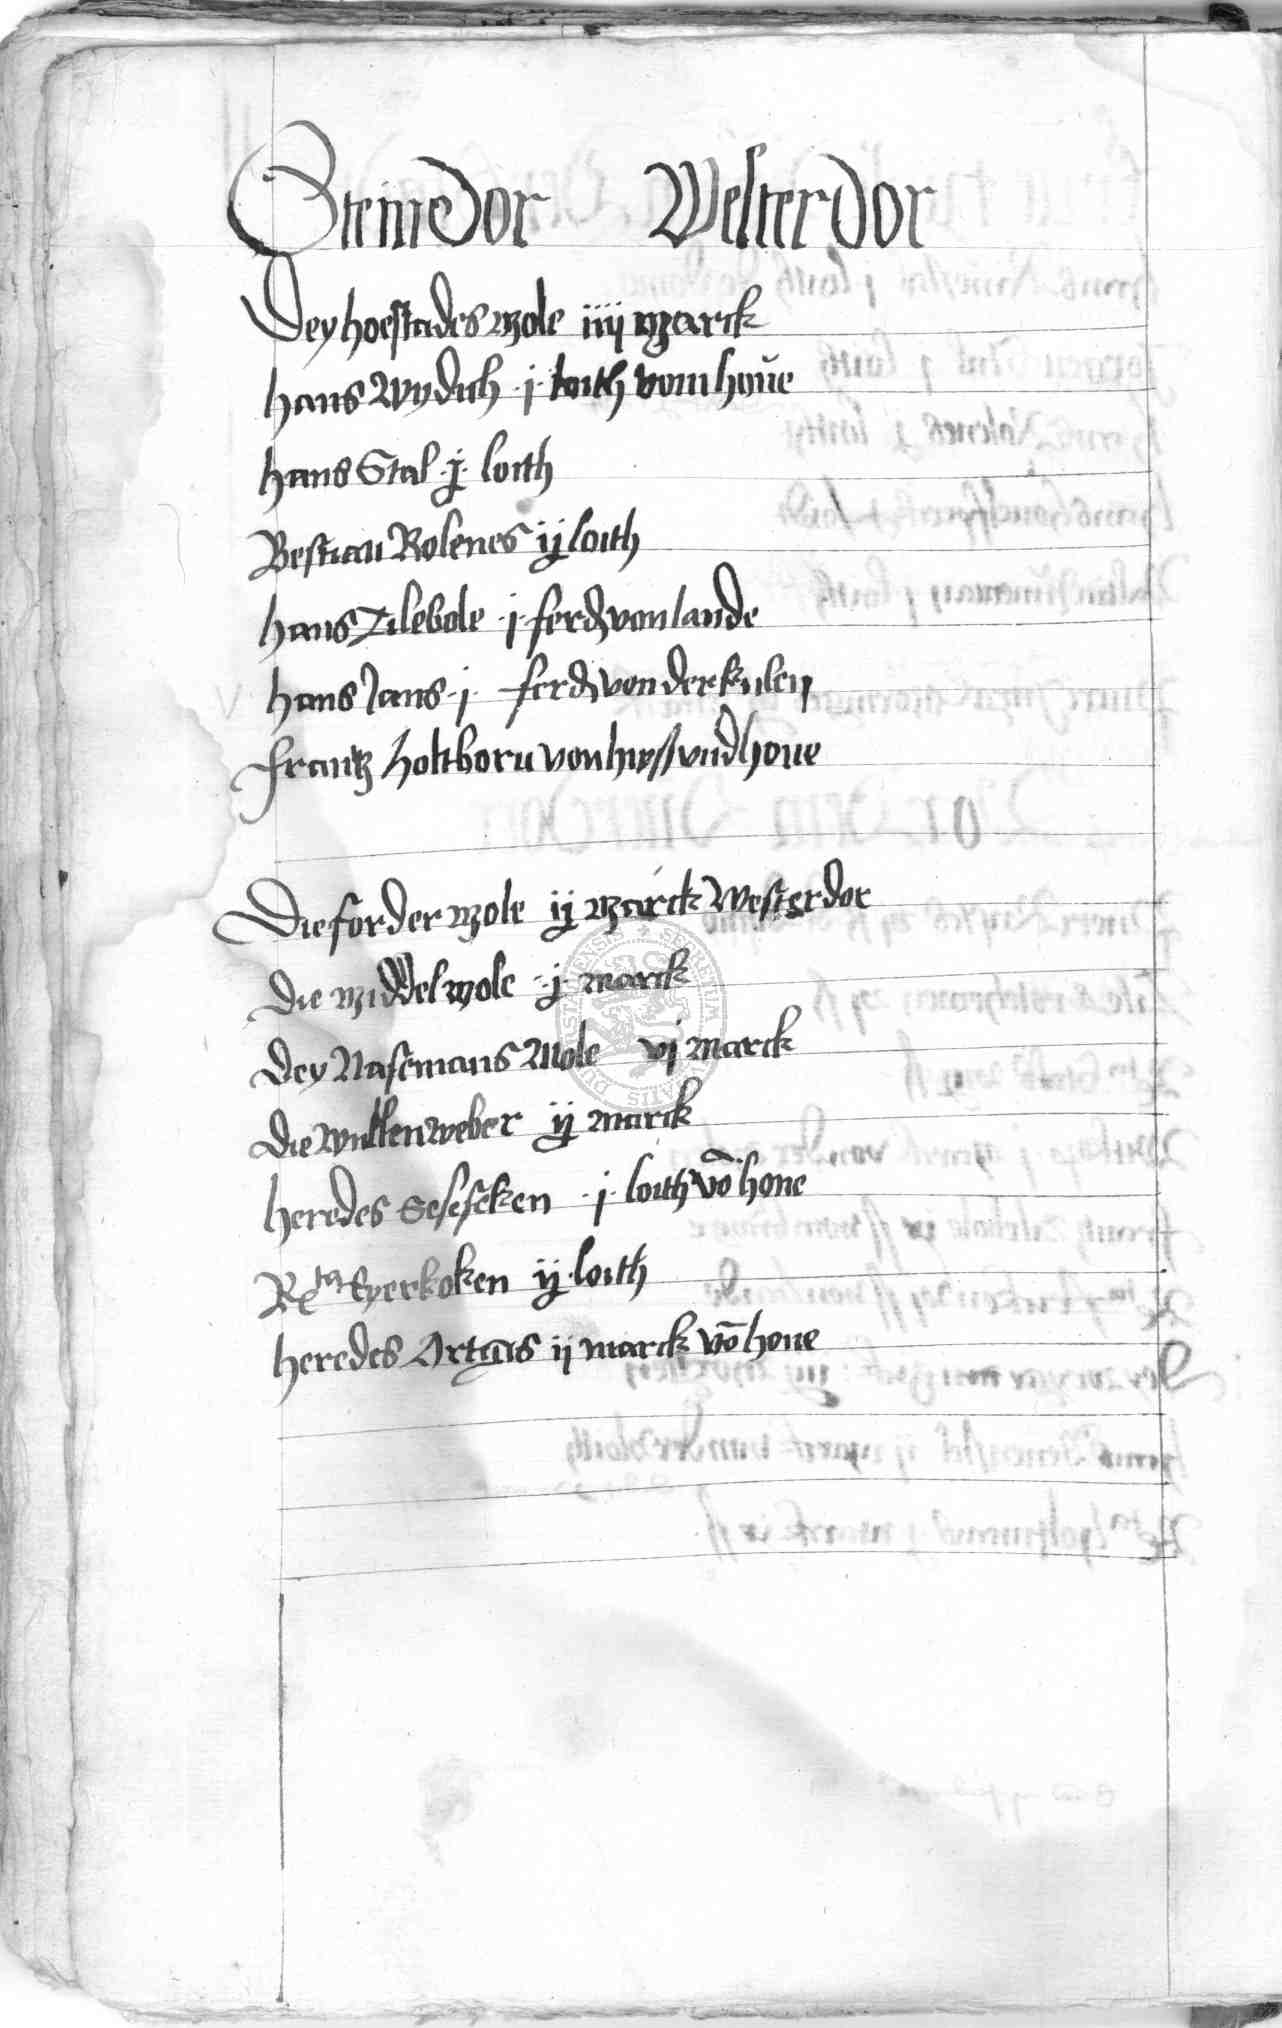 Steinedor Westerdor
Dey hoestades mole iiij marck
hans Wydich ·j· loith vom houe
hans Stal ·j· loith
Bestian Rolenes ij loith
hans Tilebole ·j· ferd von lande
hans Jans ·j· ferd von der kulen
frantz Holtborn von huss vnd houe
Die forder mole ij marck Westerdor
Die middel mole ·j· marck
Dey Nasemans Mole vj marck
Die wullenweber ij marck
heredes Seseken ·j· loith vō houe
Rcta Eyerkoken ij loith
heredes ij marck vō houe